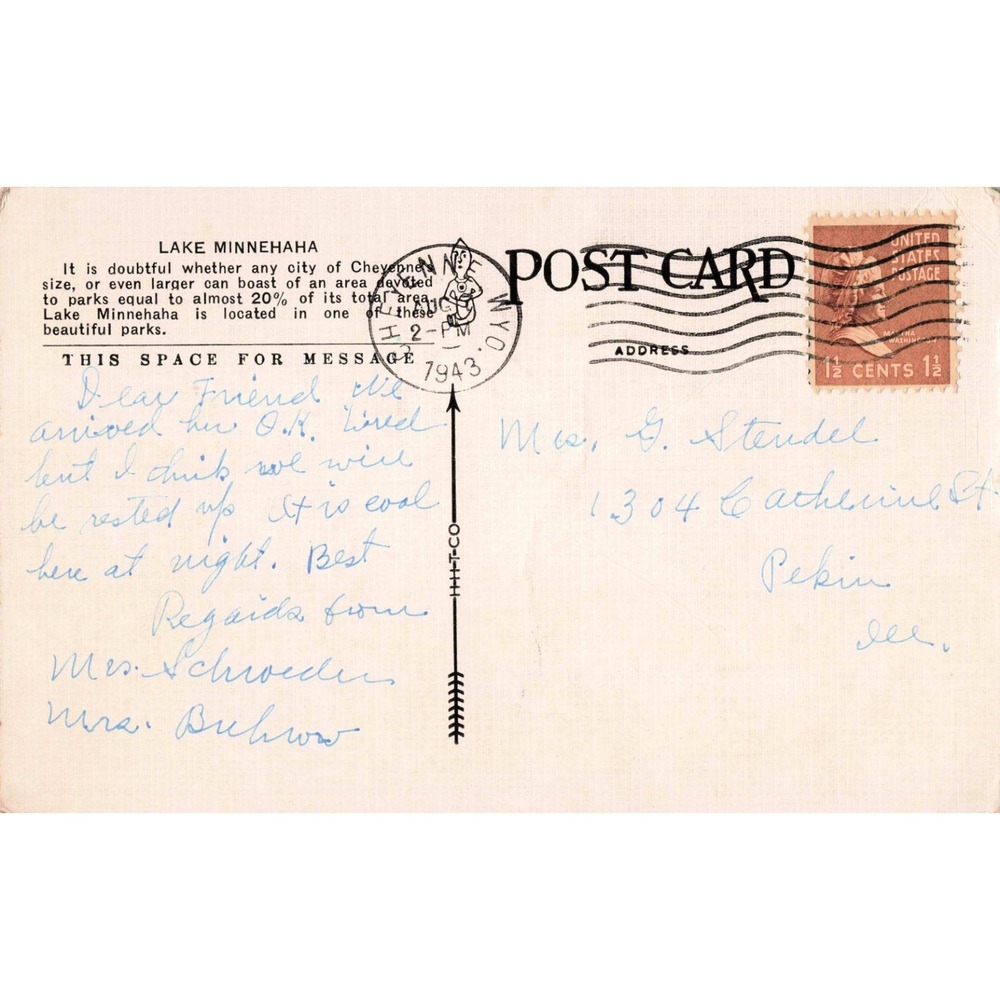 LAKE MINNEHAHA
It is doubtful whether any city of Cheyenne's
size, or even larger can boast of an area devoted
to parks equal to almost 20% of its total area.
Lake Minnehaha is located in one of these
beautiful parks.
THIS SPACE FOR MESSAGE
Dear Friend We
arrived her O.K. tired
but I think we will
be rested up It is cool
here at night. Best
Regards from
Mrs. Schroeder
Mrs. Buhrow
CHEYENNE WYO.
AUG
2-PM
1943
HHT-CO
POST CARD
ADDRESS
UNITED
STATES
POSTAGE
MARTHA
WASHINGTON
1½ CENTS 1½
Mrs. G. Stendel
1304 Catherine St
Pekin
Ill.